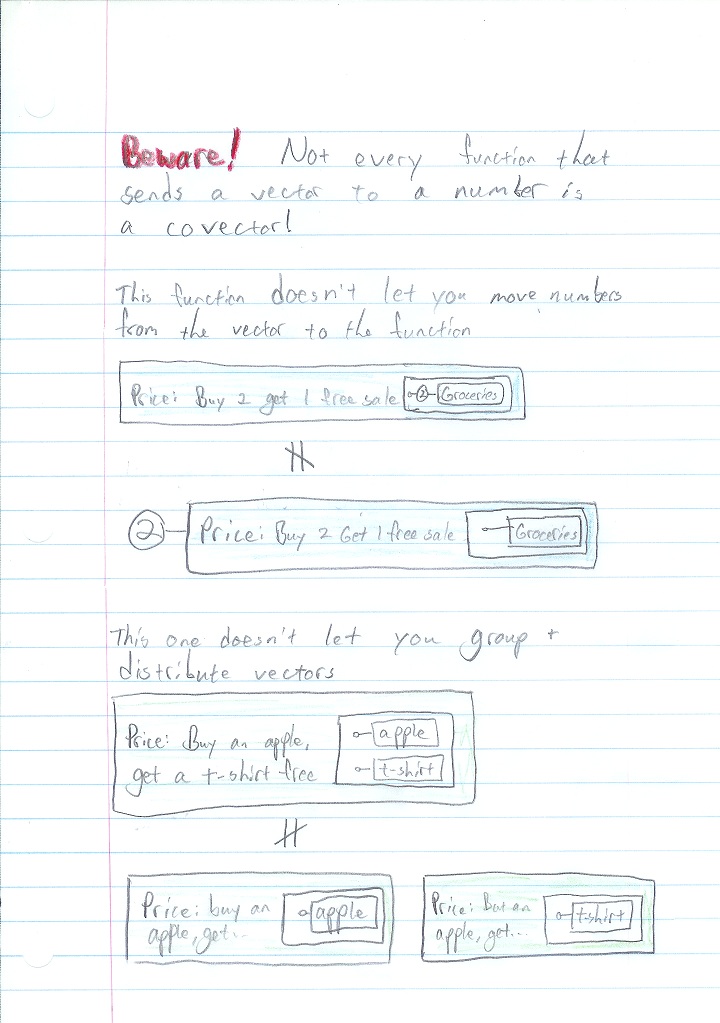 Beware! Not every function that
sends a vector to a number is
a covector!
This function doesn't let you move numbers
from the vector to the function
Price: Buy 2 get 1 free sale 2 Groceries
≠
2 Price: Buy 2 Get 1 free sale Groceries
This one doesn't let you group +
distribute vectors
Price: Buy an apple,
get a t-shirt free
apple
t-shirt
≠
Price: buy an
apple, get...
apple
Price: But an
apple, get...
t-shirt